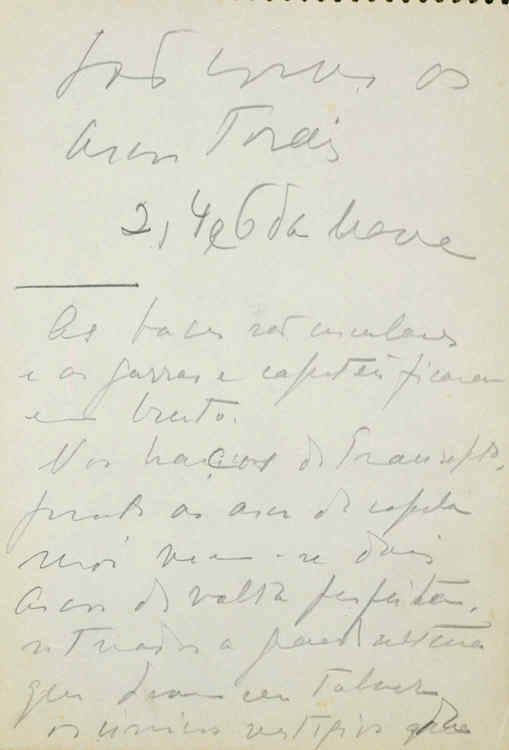 São os
arcos Torais
2, 4 e 6 da nave
As bases são circulares
e as garras e capiteis ficaram
em bruto.
Nos braços do Transepto,
junto ao arco da capela
mór veem-se dois
arcos de volta perfeita,
situados a
que talvez
os unicos vestigios que